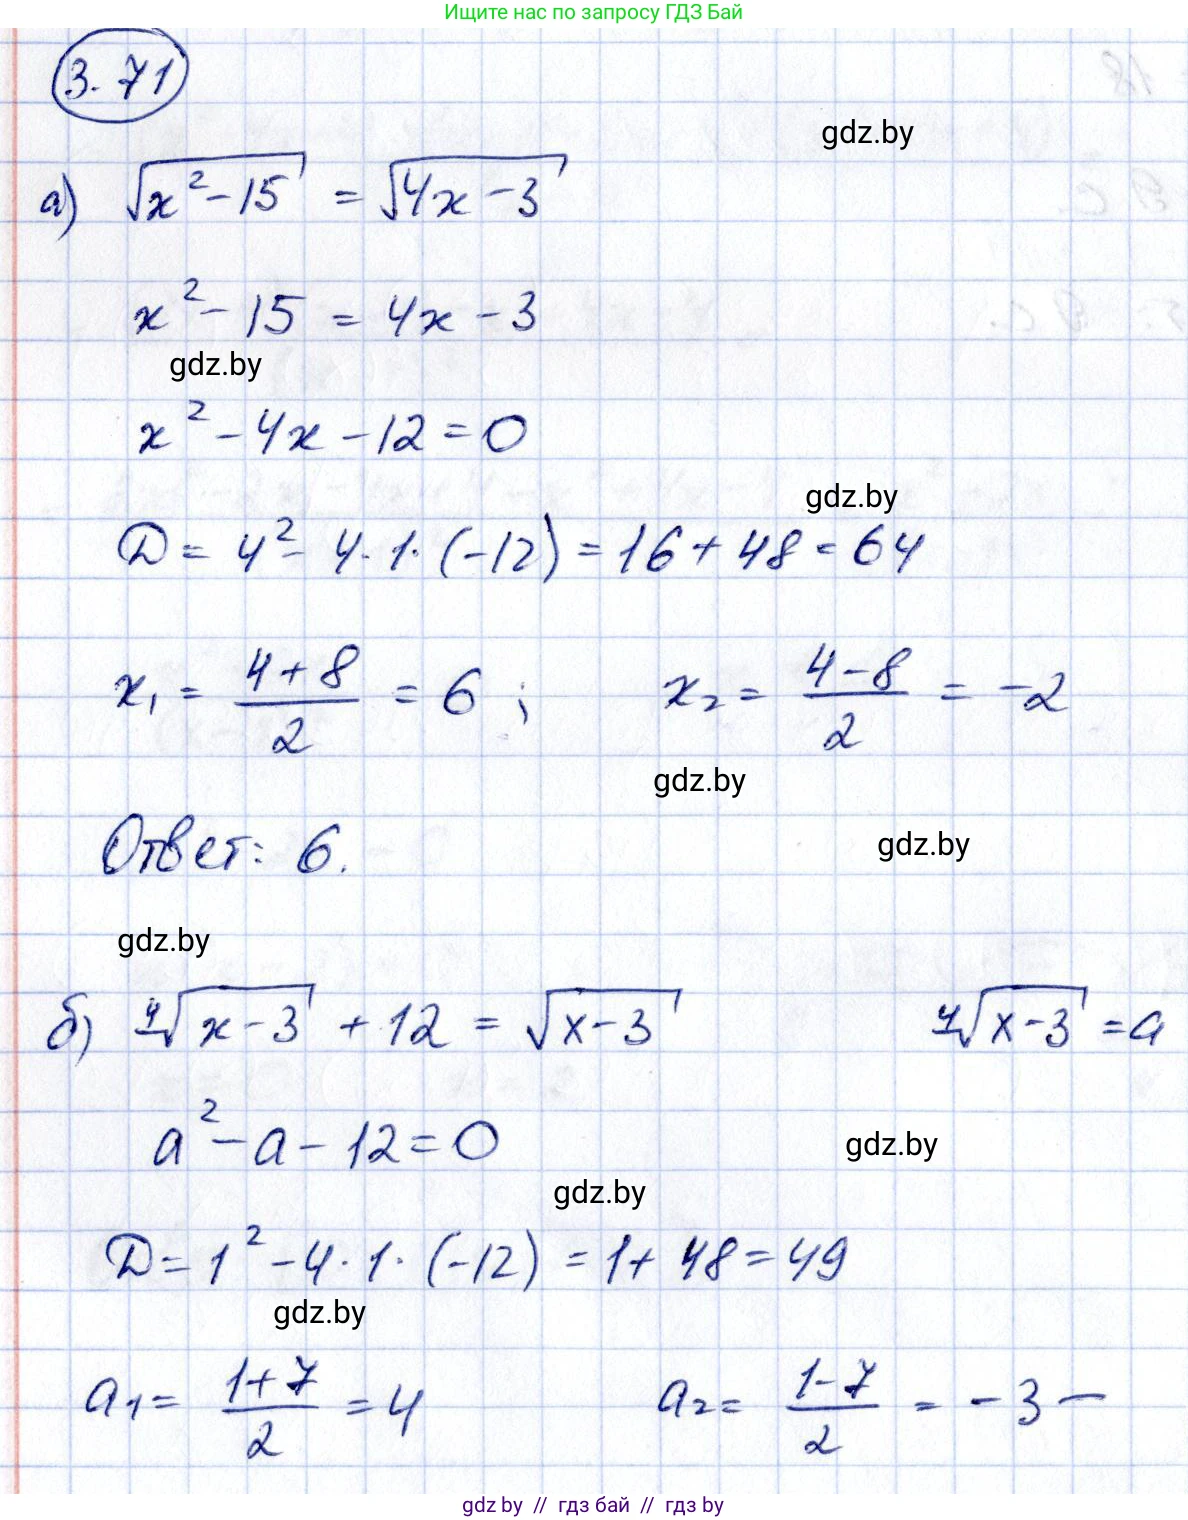 Ищите нас по запросу ГДЗ Бай
3.71
gdz.by
а) √(x² - 15) = √(4x - 3)
x² - 15 = 4x - 3
gdz.by
x² - 4x - 12 = 0
gdz.by
D = 4² - 4 · 1 · (-12) = 16 + 48 = 64
x₁ = (4 + 8)/2 = 6 ; x₂ = (4 - 8)/2 = -2
gdz.by
Ответ: 6.
gdz.by
gdz.by
б) ⁴√(x - 3) + 12 = √(x - 3) ⁴√(x - 3) = a
a² - a - 12 = 0
gdz.by
gdz.by
D = 1² - 4 · 1 · (-12) = 1 + 48 = 49
gdz.by
a₁ = (1 + 7)/2 = 4 a₂ = (1 - 7)/2 = -3 -
gdz by // гдз бай // гдз by